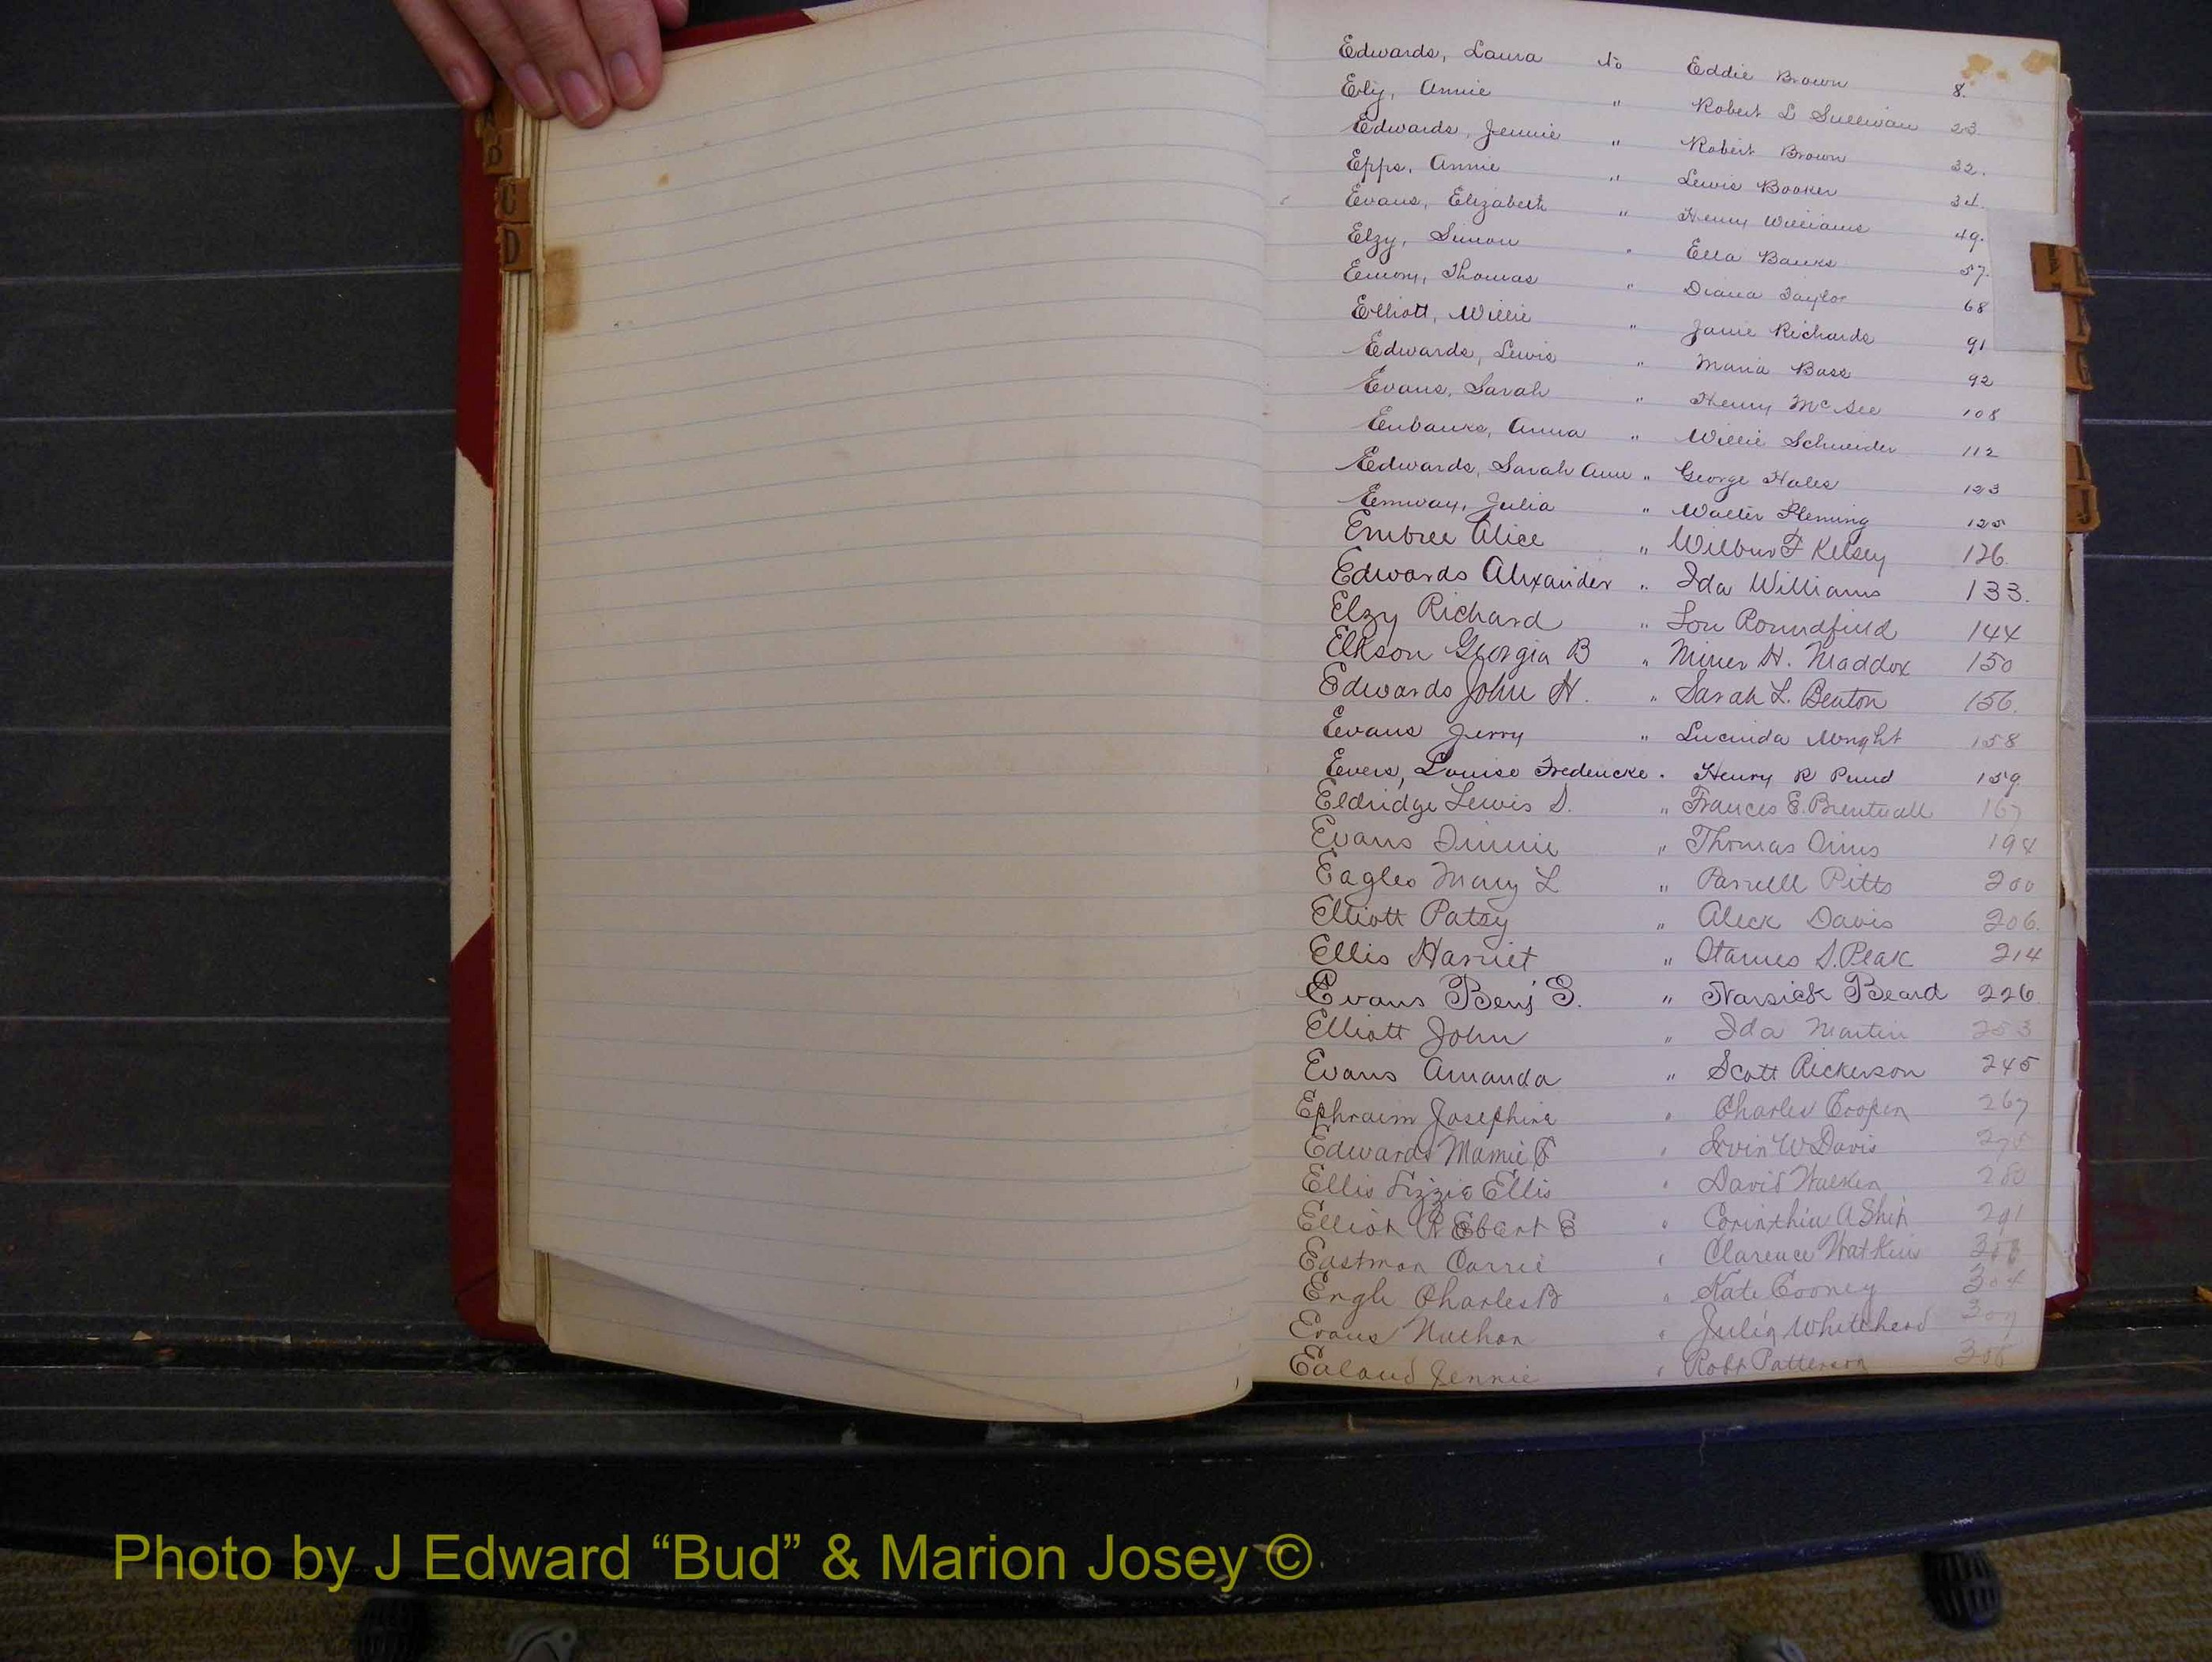 B
C
D
Edwards, Laura to Eddie Brown 8.
Ely, Annie " Robert L Sullivan 23.
Edwards, Jennie " Robert Brown 32.
Epps, Annie " Lewis Booker 34.
Evans, Elizabeth " Henry Williams 49.
Elzy, Simon " Ella Banks 57.
Emory, Thomas " Diana Taylor 68
Elliott, Willie " Janie Richards 91
Edwards, Lewis " Maria Bass 92
Evans, Sarah " Henry McGee 108
Eubanks, Anna " Willie Schneider 112
Edwards, Sarah Ann " George Hales 123
Emway, Julia " Walter Fleming 125
Embree Alice " Wilbur F Kelsey 126.
Edwards Alexander " Ida Williams 133.
Elzy Richard " Lou Roundfield 144
Elkson Georgia B " Miner H. Maddox 150
Edwards John H. " Sarah L. Benton 156.
Evans Jerry " Lucinda Wright 158
Evers, Louise Fredericke " Henry R 159.
Eldridge Lewis S. " Frances E. Brentnall 167
Evans " Thomas 194
Eagles Mary L " Parnell Pitts 200
Elliott Patsy " Aleck Davis 206.
Ellis Harriet " Starnes S. Peak 214
Evans Benj G. " Narsick Beard 226
Elliott John " Ida Martin 253
Evans Amanda " Scott Rickerson 245
Ephraim Josephine " Charles Cropen 267
Edwards Mamie F " Irvin W Davis
Ellis Lizzie Ellis " David Walker 280
Elliot R Ebert E " Corinthia A Ship 291
Eastman Carrie " Clarence Watkins
Engle Charles B " Kate Cooney 304
Evans Nathan " Julia Whitehead 307
Ealand Jennie " Robt Patterson 308
J
Photo by J Edward “Bud” & Marion Josey ©